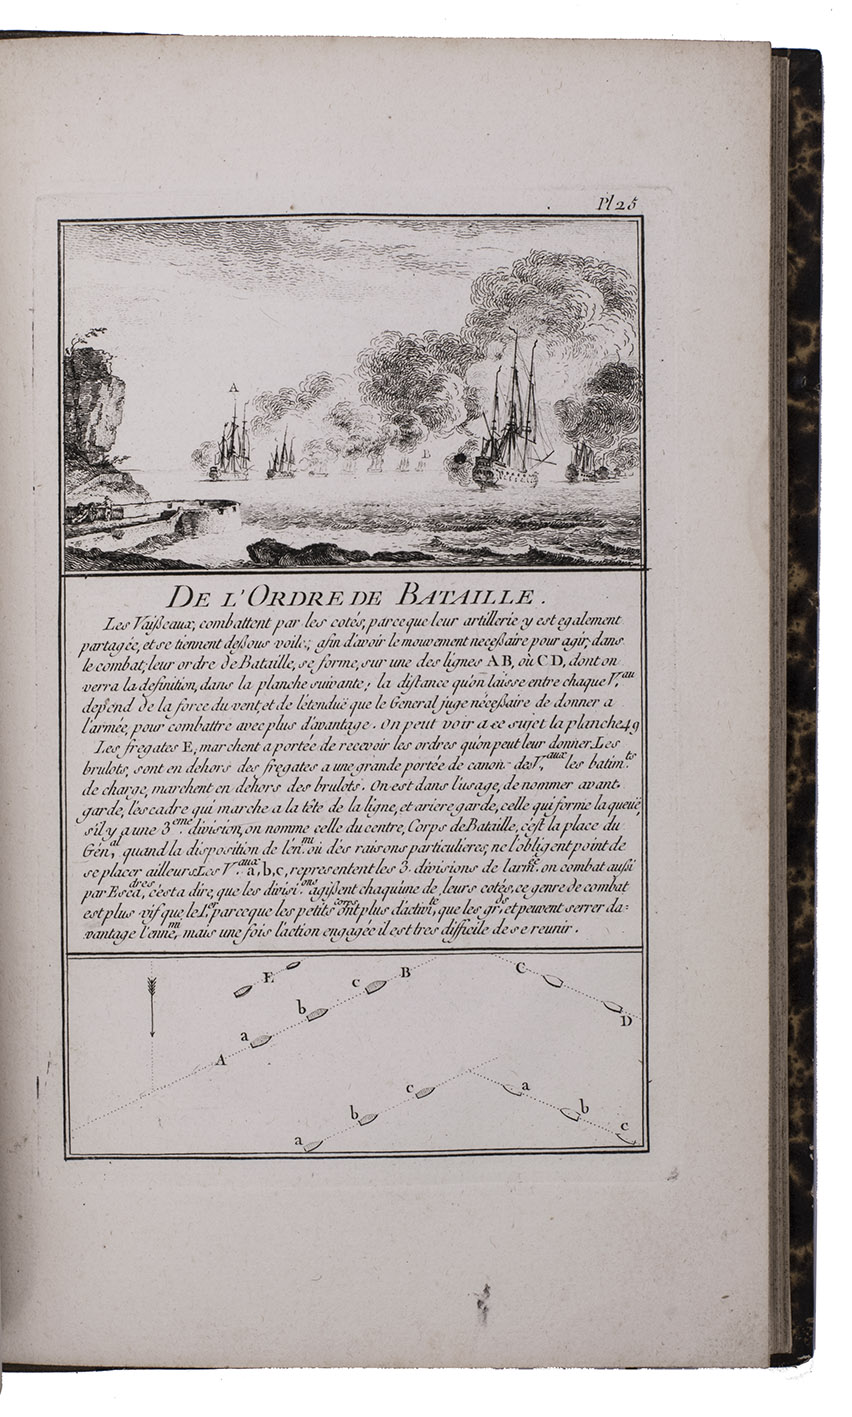 Pl 25
A
B
DE L'ORDRE DE BATAILLE.
Les Vaißeaux, combattent par les cotés, parceque leur artillerie y est egalement
partagée, et se tiennent deßous voile; afin d'avoir le mouvement neceßaire pour agir, dans
le combat, leur ordre de Bataille, se forme, sur une des lignes AB, où CD, dont on
verra la definition, dans la planche suivante; la distance qu'on laisse entre chaque V.au
depend de la force du vent, et de l'étenduë que le General juge néceßaire de donner a
l'armée, pour combattre avec plus d'avantage. On peut voir a ce sujet la planche 49
Les fregates E, marchent a portée de recevoir les ordres qu'on peut leur donner. Les
brulots, sont en dehors des fregates a une grande portée de canon des V.aux les batim.ts
de charge, marchent en dehors des brulots. On est dans l'usage, de nommer avant-
garde, l'escadre qui marche a la tête de la ligne, et ariere garde, celle qui forme la queuë,
s'il y a une 3.eme division, on nomme celle du centre, Corps de Bataille, c'est la place du
Gén.al quand la disposition de l'én.mi où dés raisons particulieres, ne l'obligent point de
se placer ailleurs. Les V.aux a, b, c, representent les 3. divisions de l'arm.ée on combat außi
par Escad.res, c'est a dire, que les divisi.ons agißent chaquune de leurs cotés, ce genre de combat
est plus vif que le 1.er parceque les petits corps ont plus d'activi.té, que les gr.ds, et peuvent serrer da=
vantage l'enne.mi, mais une fois l'action engagée il est tres difficile de se reunir.
E c B C
b D
a
A
c a
b b
a c